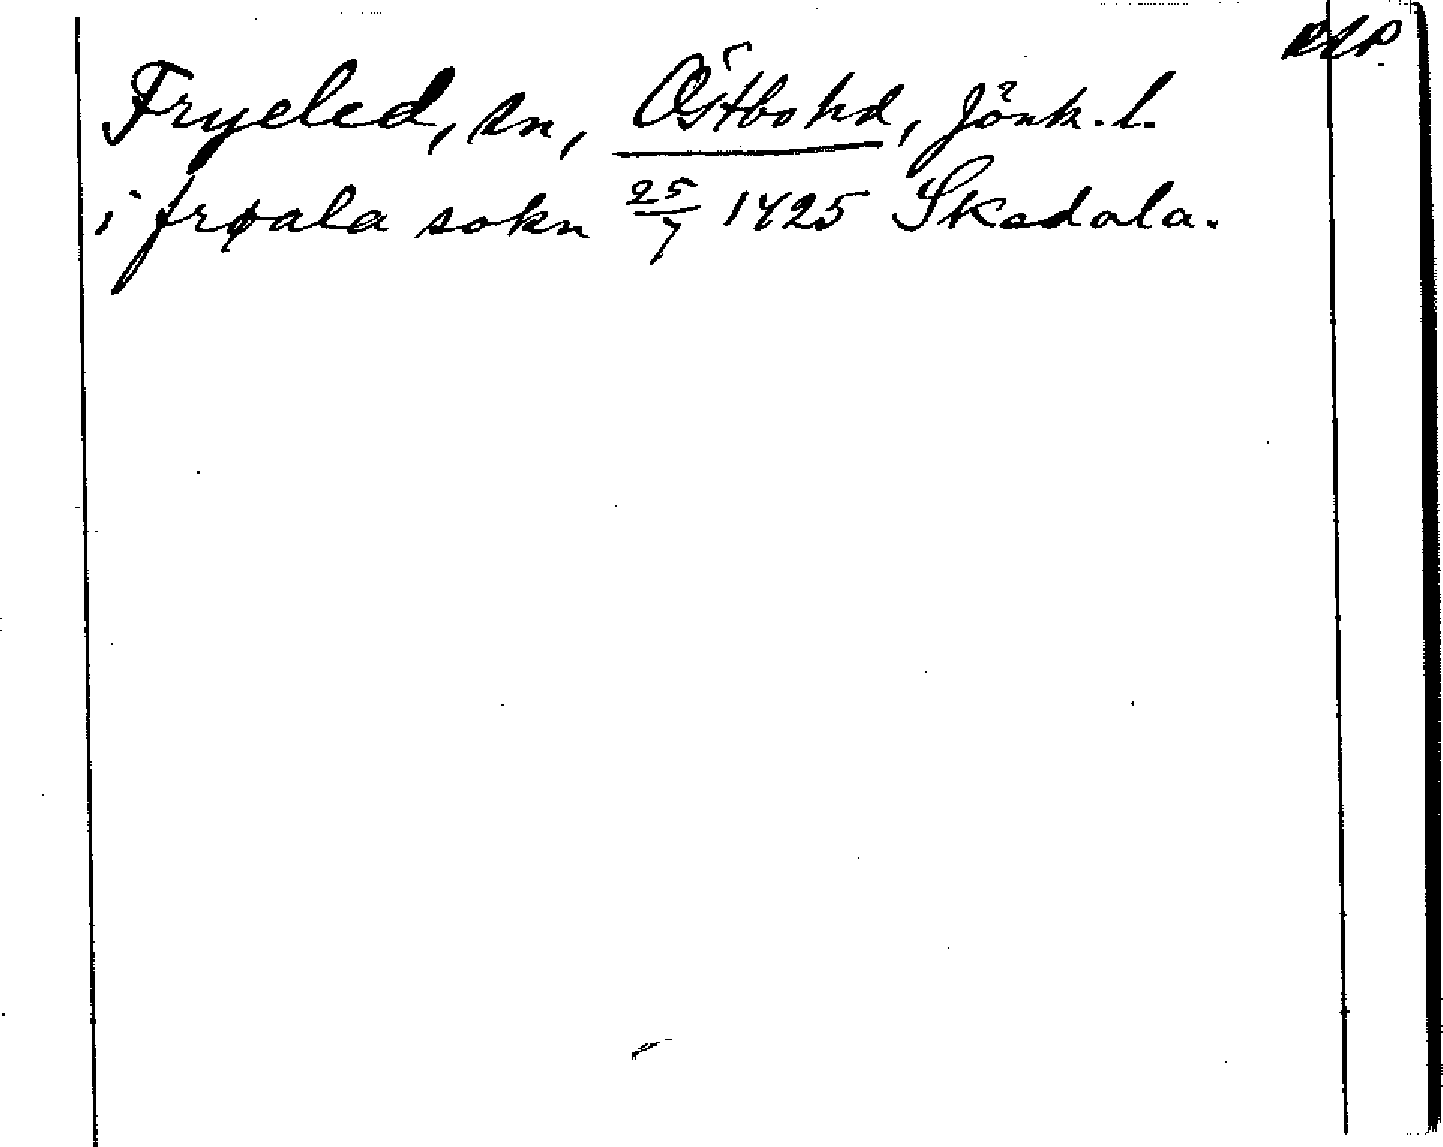 RAP
Fryeled, sn, Östbo hd, Jönk. l.
i frøala sokn 25/7 1425 Skedala.